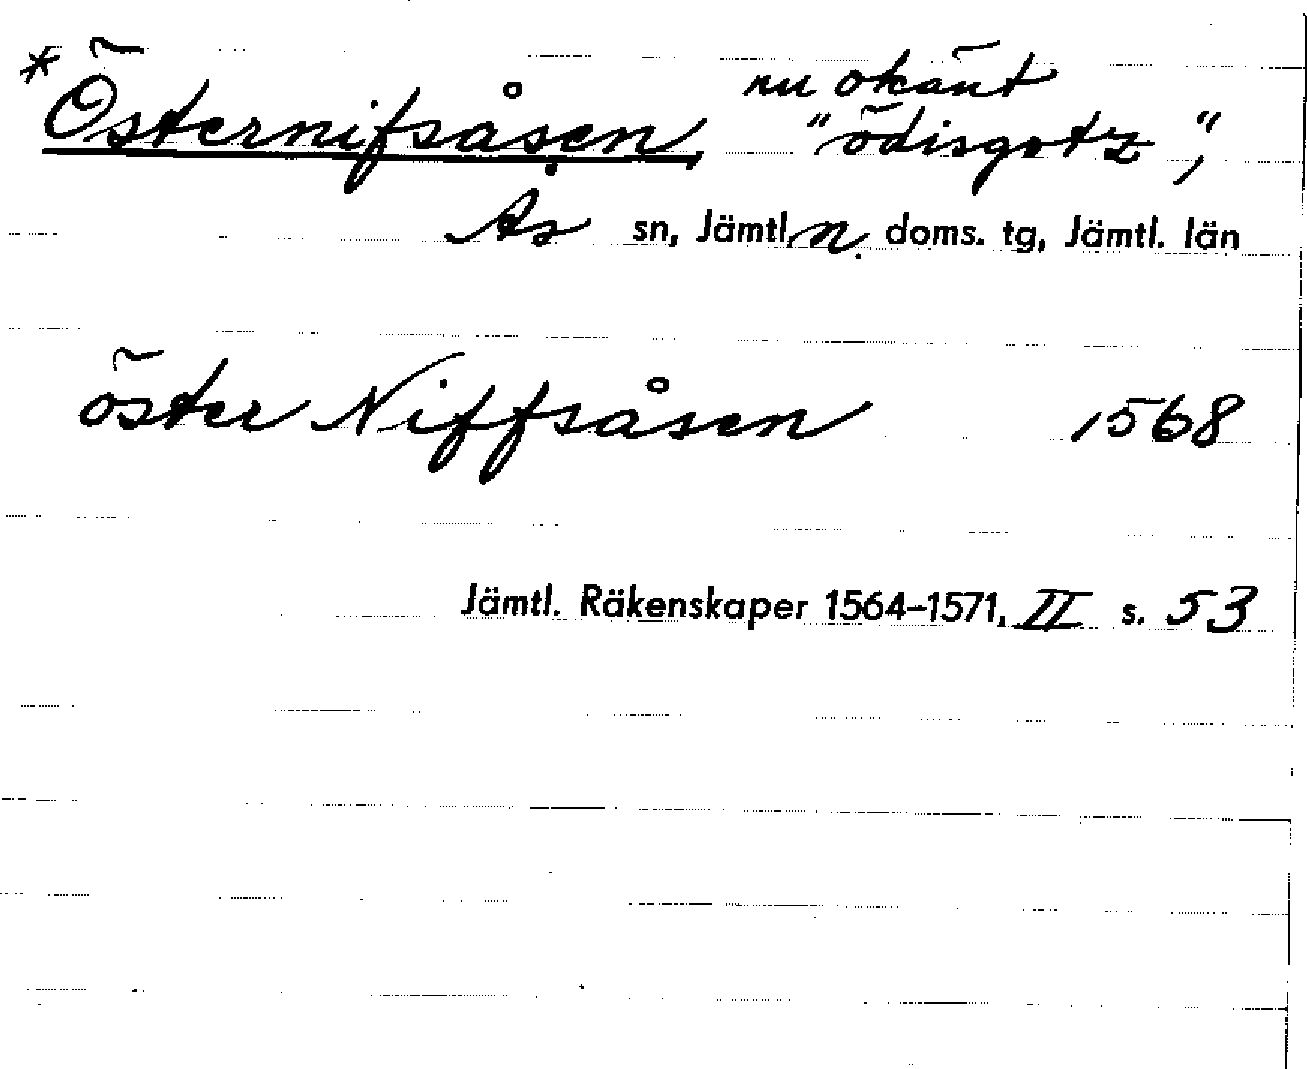 *Östernifsåsen, nu okänt "ödisgotz",
Ås sn, Jämtl. n. doms. tg, Jämtl. län
öster Niffsåsen 1568
Jämtl. Räkenskaper 1564–1571, II s. 53